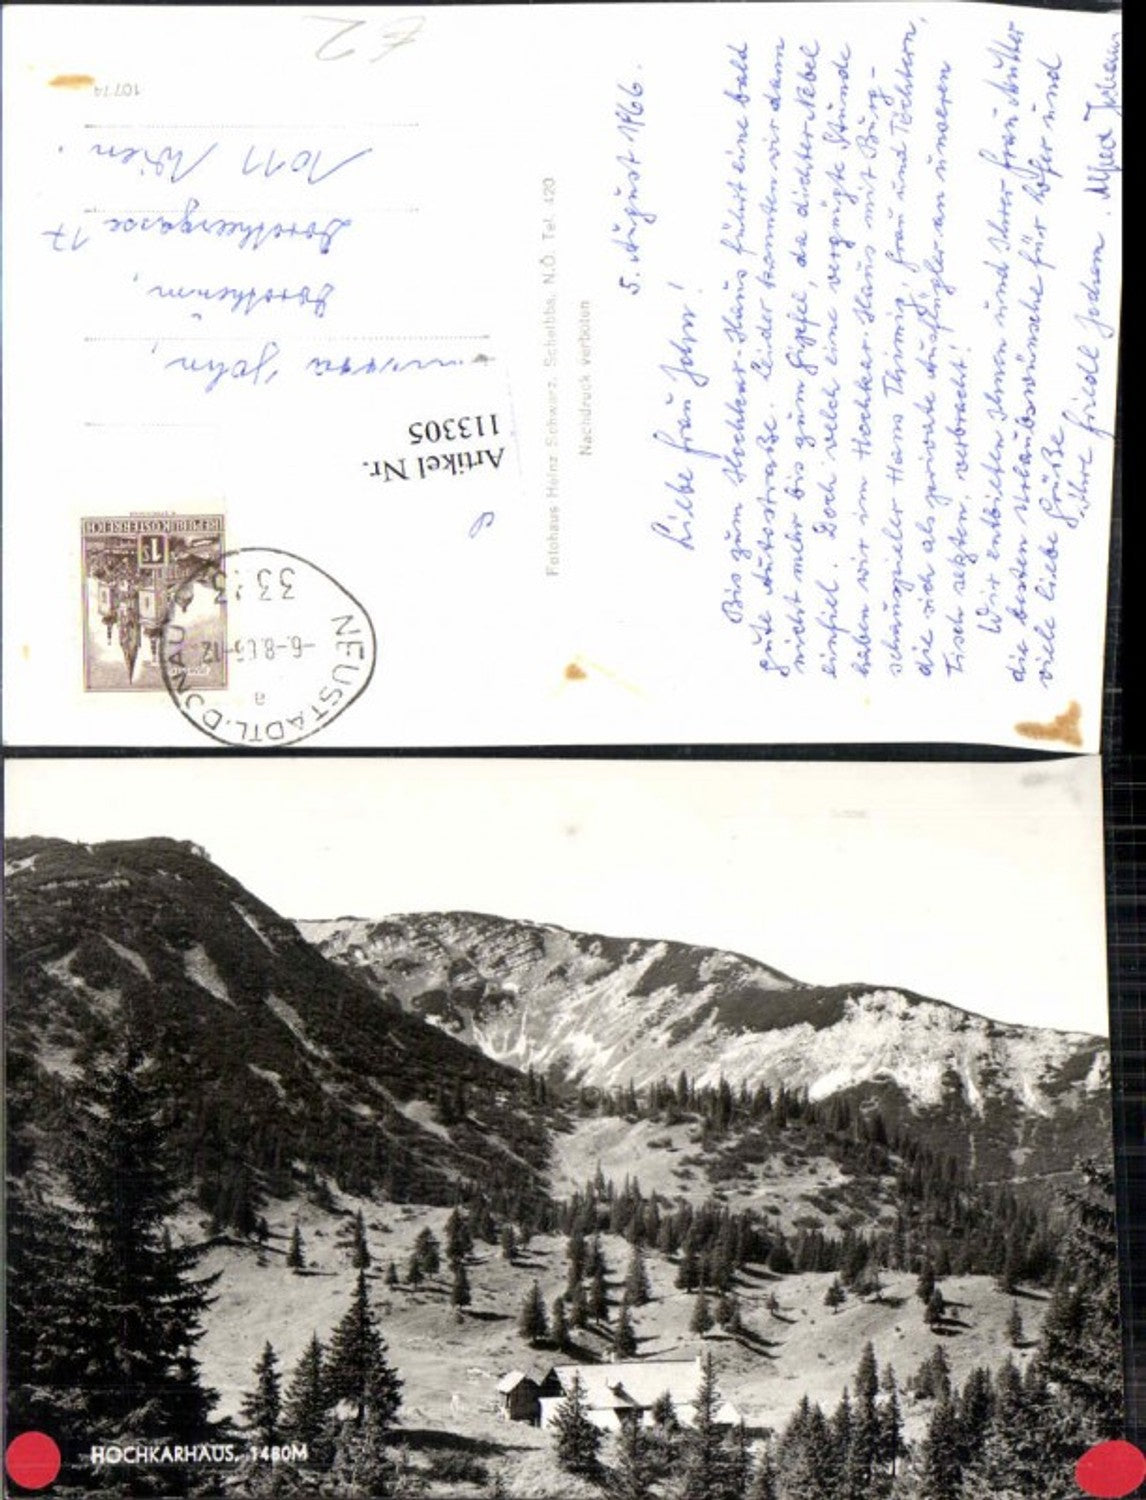 5. August 1966.
Liebe Frau John!
Bis zum Hochkar-Haus führt eine bald
gute Autostraße. Leider konnten wir dann
nicht mehr bis zum Gipfel, da dichter Nebel
einfiel. Doch welch eine vergnügte Stunde
haben wir im Hochkar-Haus mit Burg-
schauspieler Hans Thimig, Frau und Töchtern,
die sich als private Ausflügler an unseren
Tisch setzten, verbracht!
Wir entbieten Ihnen und Ihrer Frau Mutter
die besten Urlaubswünsche für und
viele liebe Grüße
Ihre Friedl Jochem. Alfred
Fotohaus Heinz Schwarz, Scheibbs, N.Ö. Tel. 420
Nachdruck verboten
REPUBLIK ÖSTERREICH
1 S
NEUSTADTL.DONAU
-6-8.66-12
a
3323
Artikel Nr.
113305
John,
Dorotheum,
Dorotheergasse 17
1011 Wien.
10774
€2
HOCHKARHAUS, 1480M